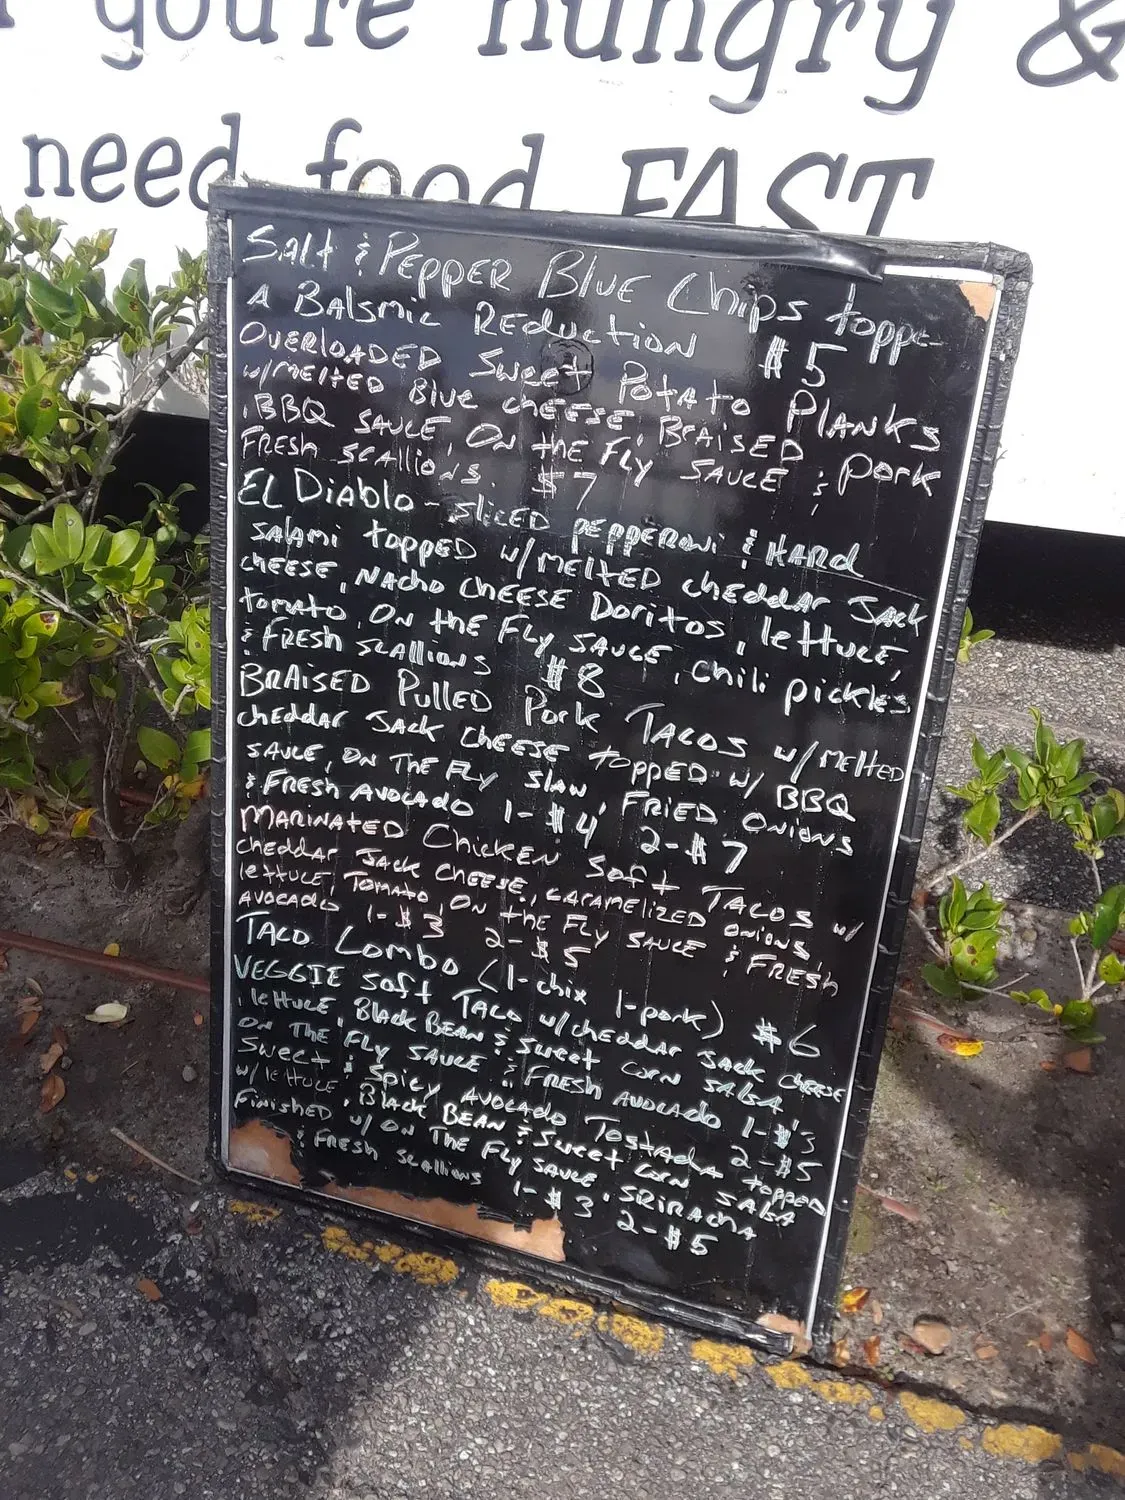 you're hungry &
need food FAST
Salt & PEPPER BLUE Chips toppe
A BALSMIC REDUCTION $5
OVERLOADED Sweet POTATO PLANKS
w/MELTED BLUE CHEESE, BRAISED PORK
, BBQ SAUCE, ON the FLY SAUCE &
FRESH SCALLIONS. $7
EL DIABLO - SLICED PEPPERONI & HARD
SALAMI TOPPED w/MELTED cheddar JACK
CHEESE, NACHO CHEESE DORITOS, lettuce,
TOMATO, ON the FLY SAUCE, chili pickles
& FRESH SCALLIONS $8
BRAISED Pulled Pork TACOS w/MELTED
cheddar JACK CHEESE TOPPED w/ BBQ
SAUCE, ON THE FLY SLAW, FRIED ONIONS
& FRESH AVOCADO 1-$4 2-$7
MARINATED Chicken Soft TACOS w/
cheddar JACK CHEESE, CARAMELIZED ONIONS,
lettuce, TOMATO, ON the FLY SAUCE & FRESH
AVOCADO 1-$3 2-$5
TACO LOMBO (1-chix 1-pork) $6
VEGGIE SOFT TACO w/cheddar JACK CHEESE
, lettuce, BLACK BEAN & Sweet CORN SALSA,
ON THE FLY SAUCE & FRESH AVOCADO 1-$3
2-$5
Sweet & Spicy AVOCADO Tostada topped
w/ lettuce, BLACK BEAN & Sweet CORN SALSA
FINISHED w/ ON THE FLY SAUCE, SRIRACHA
& FRESH SCALLIONS 1-$3 2-$5